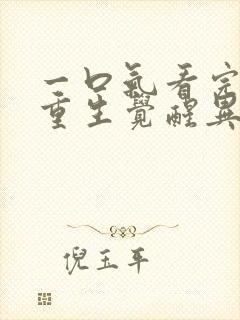 一口氣看完
重生覺醒異
倪玉平